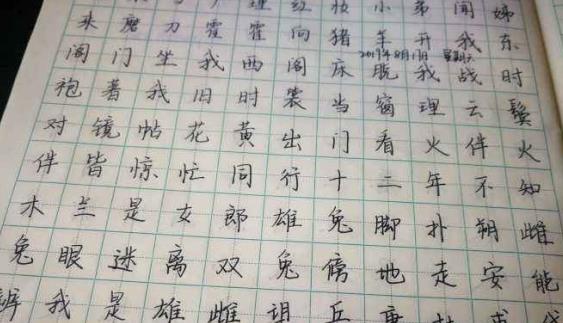 理红妆小弟闻姊
来磨刀霍霍向猪羊开我东
阁门坐我西阁床脱我战时
袍着我旧时裳当窗理云鬓
对镜帖花黄出门看火伴火
伴皆惊忙同行十二年不知
木兰是女郎雄兔脚扑朔雌
兔眼迷离双兔傍地走安能
辨我是雄雌